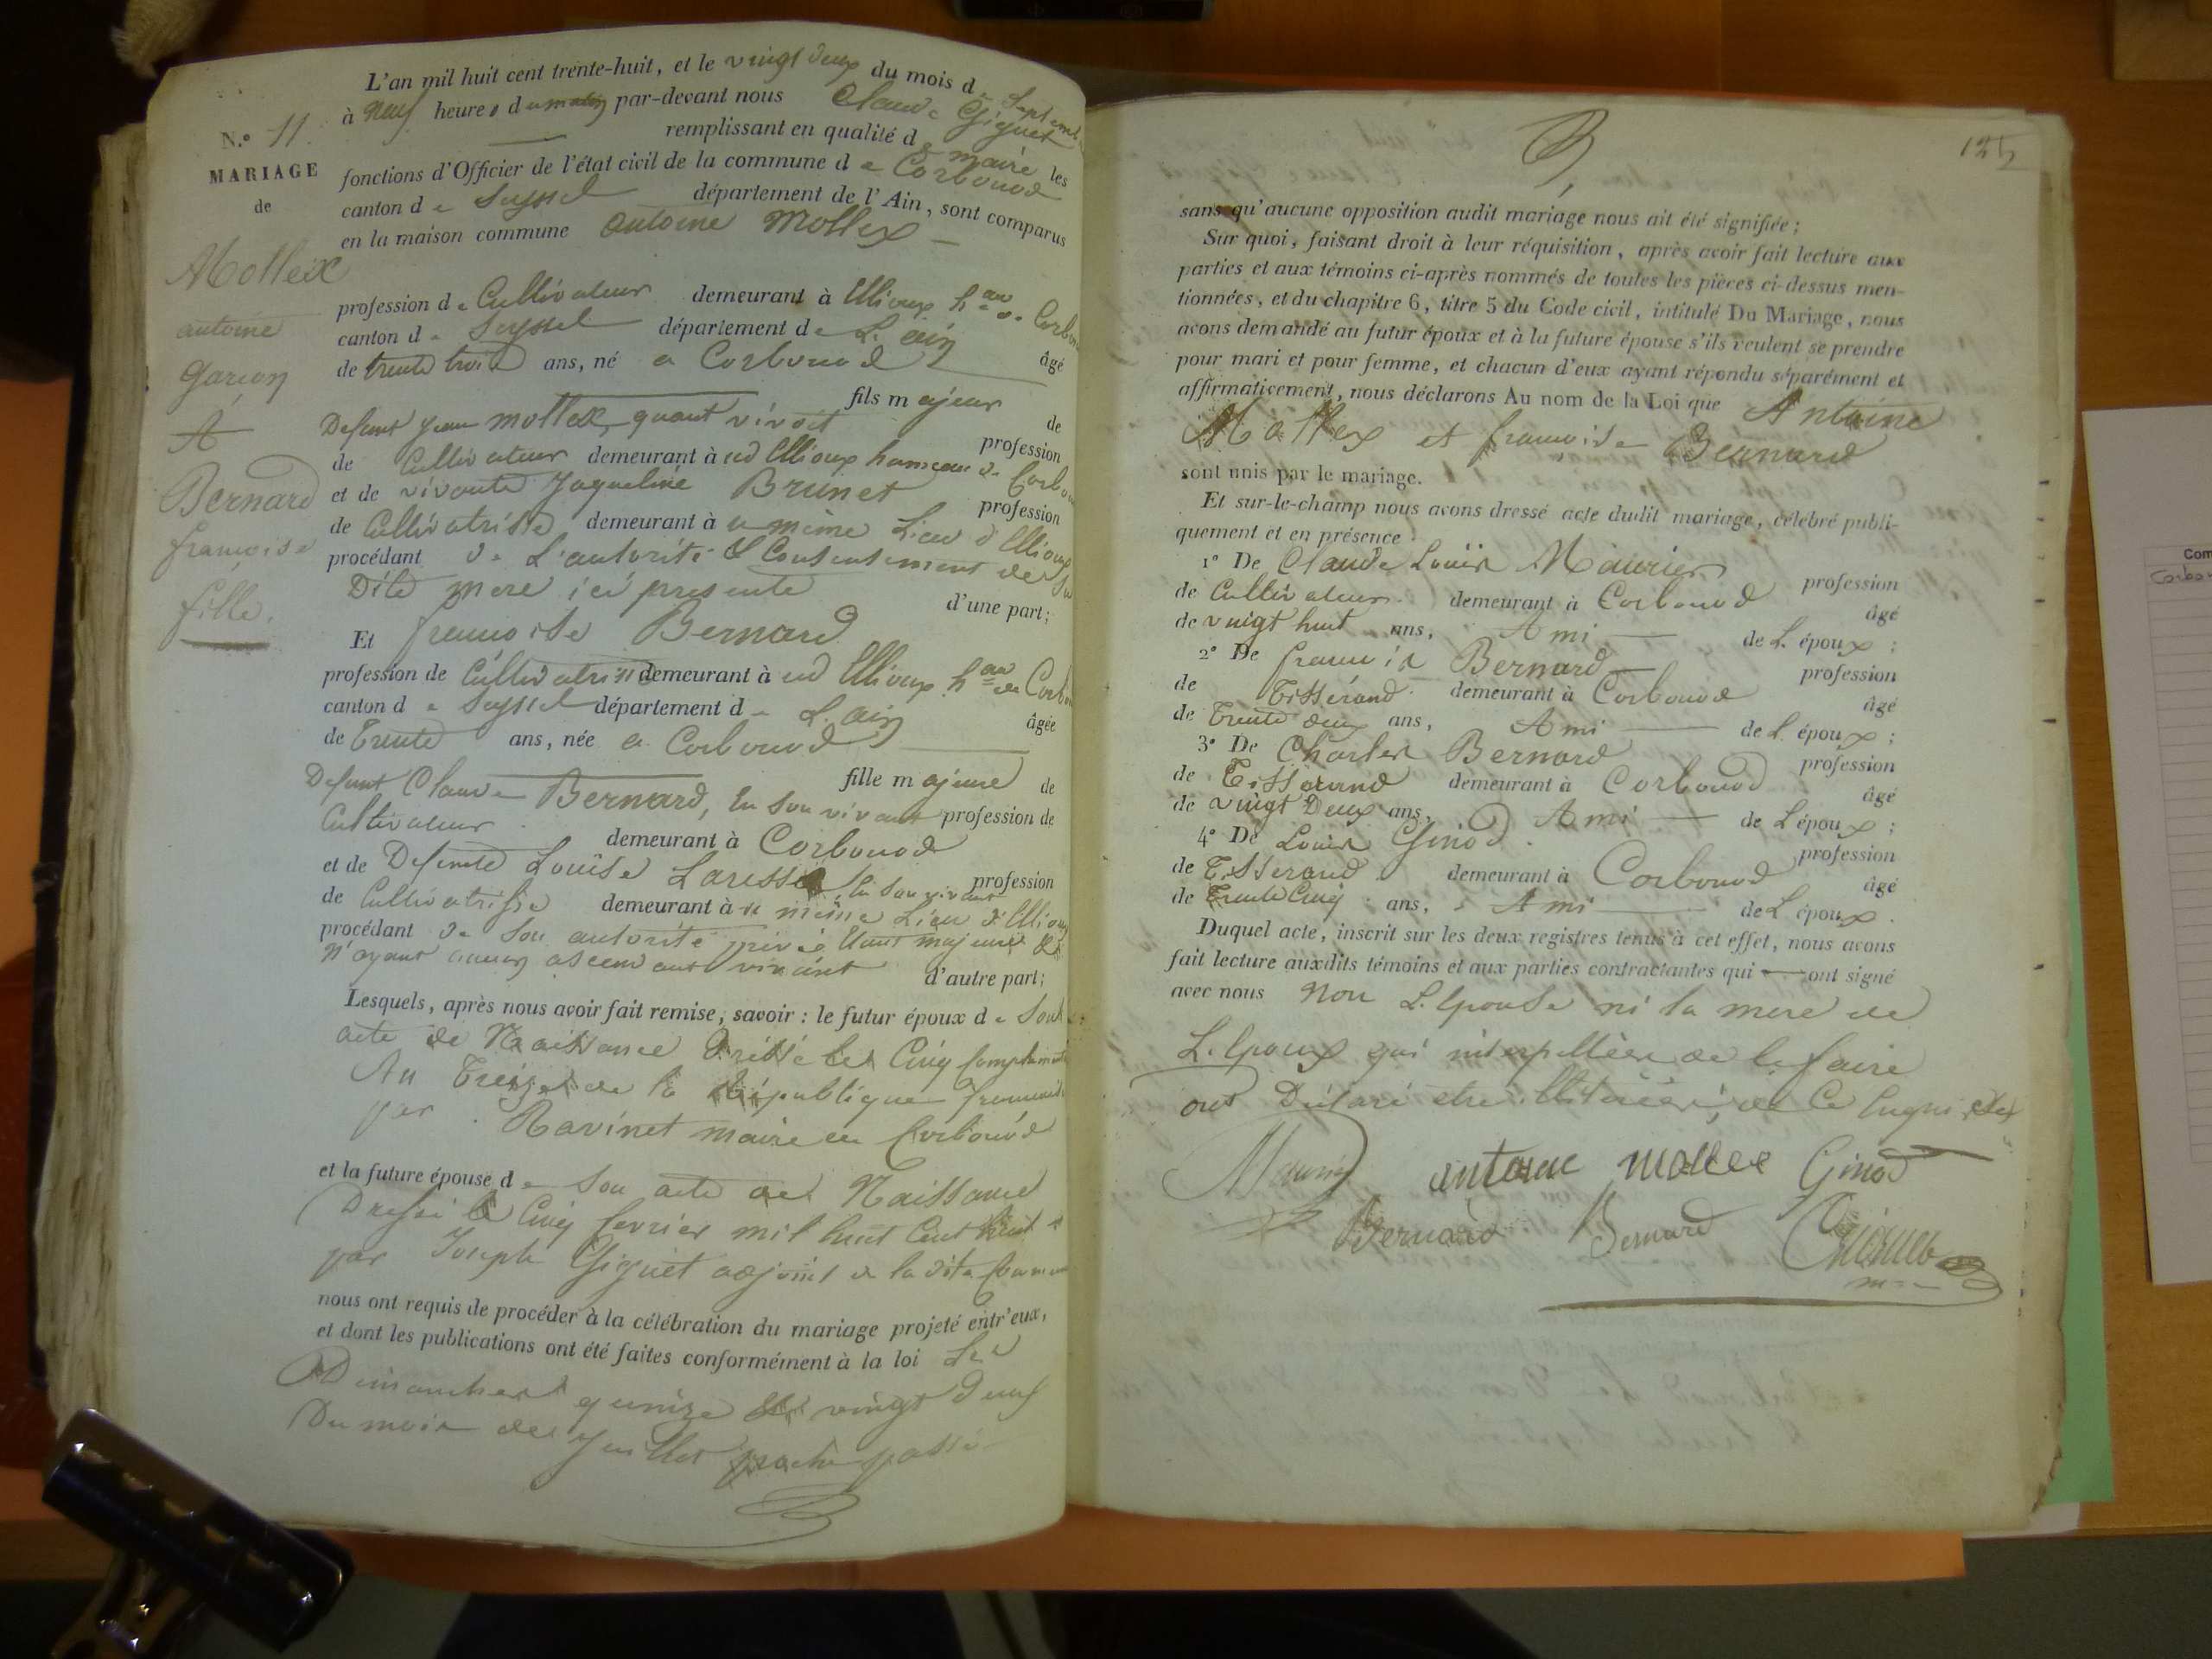 L'an mil huit cent trente-huit, et le vingt deux du mois de Septembre
à neuf heures du matin par-devant nous Claude Giguet
remplissant en qualité de maire les
fonctions d'Officier de l'état civil de la commune de Corbonod
canton de Seyssel département de l'Ain, sont comparus
en la maison commune antoine Mollex
N.º 11
MARIAGE
de
Mollex
antoine
garçon
A
Bernard
françoise
fille.
profession de Cultivateur demeurant à Ellioux h.au de Corbonod
canton de Seyssel département de L'ain âgé
de trente trois ans, né a Corbonod
fils majeur de
Defunt jean mollex, quant vivoit profession
de Cultivateur demeurant à ud Ellioux hameau de Corbonod
et de vivante Jaqueline Brunet profession
de Cultivatrisse demeurant à u même Lieu d'Ellioux
procédant de L'autorité & Consentement de Su
Dite mere ici presente d'une part;
Et francoise Bernard
profession de Cultivatrisse demeurant à ud Ellioux h.au de Corbonod
canton de Seyssel département de L'ain âgée
de Trente ans, née a Corbonod
fille majeure de
Defunt Claude Bernard, En Son vivant profession de
Cultivateur demeurant à Corbonod
et de Defunte Louise En Son vivant profession
de Cultivatrisse demeurant à u même Lieu d'Ellioux
procédant de Son autorité privée Etant majeure &
N'ayant aucun ascendant vivant d'autre part;
Lesquels, après nous avoir fait remise, savoir: le futur époux de Son
acte de Naissance Dréssé le Cinq Complementaire
An Treize de la République francaise
par Ravinet maire de Corbonod
et la future épouse de Son acte de Naissance
Dressé le Cinq fevrier mil huit Cent huit
par Joseph Giguet adjoint de la dite Commune
nous ont requis de procéder à la célébration du mariage projeté entr'eux,
et dont les publications ont été faites conformément à la loi Les
Dimanches quinze & vingt Deux
Du mois de Juillet proche passé
125
sans qu'aucune opposition audit mariage nous ait été signifiée;
Sur quoi, faisant droit à leur réquisition, après avoir fait lecture aux
parties et aux témoins ci-après nommés de toutes les pièces ci-dessus men-
tionnées, et du chapitre 6, titre 5 du Code civil, intitulé Du Mariage, nous
avons demandé au futur époux et à la future épouse s'ils veulent se prendre
pour mari et pour femme, et chacun d'eux ayant répondu séparément et
affirmativement, nous déclarons Au nom de la Loi que Antoine
Mollex et françoise Bernard
sont unis par le mariage.
Et sur-le-champ nous avons dressé acte dudit mariage, célébré publi-
quement et en présence
1º De Claude Louis Maurier profession
de Cultivateur demeurant à Corbonod âgé
de vingt huit ans, Ami de L'époux;
2º De francois Bernard profession
de Tisserand demeurant à Corbonod âgé
de Trente deux ans, Ami de L'époux;
3º De Charles Bernard profession
de Tisserand demeurant à Corbonod âgé
de vingt Deux ans, Ami de L'époux;
4º De Louis Ginod profession
de Tisserand demeurant à Corbonod âgé
de Trente Cinq ans, Ami de L'époux.
Duquel acte, inscrit sur les deux registres tenus à cet effet, nous avons
fait lecture auxdits témoins et aux parties contractantes qui ont signé
avec nous Non L'Epouse ni la mere de
L'Epoux qui interpellées de le faire
ont Déclaré etre Illitérées, de Ce Enquises
Maurier antoine mollex Ginod
Bernard Bernard Giguet
Com